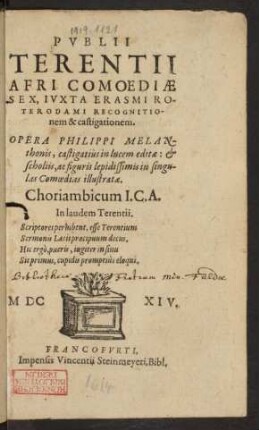 1919.1121
PVBLII
TERENTII
AFRI COMOEDIÆ
SEX, IVXTA ERASMI RO-
TERODAMI RECOGNITIO-
nem & castigationem.
OPERA PHILIPPI MELAN-
thonis, castigatius in lucem editæ: &
scholiis, ac figuris lepidissimis in singu-
las Comœdias illustratæ.
Choriambicum I.C.A.
In laudem Terentii.
Scriptores perhibent, esse Terentium
Sermonis Latii præcipuum decus,
Hic ergò, pueris, iugiter in sinu
Sit primus, cupidis promptiùs eloqui.
Bibliothecæ Fratrum min.
M DC XIV.
FRANCOFVRTI,
Impensis Vincentii Steinmeyeri, Bibl.
1614